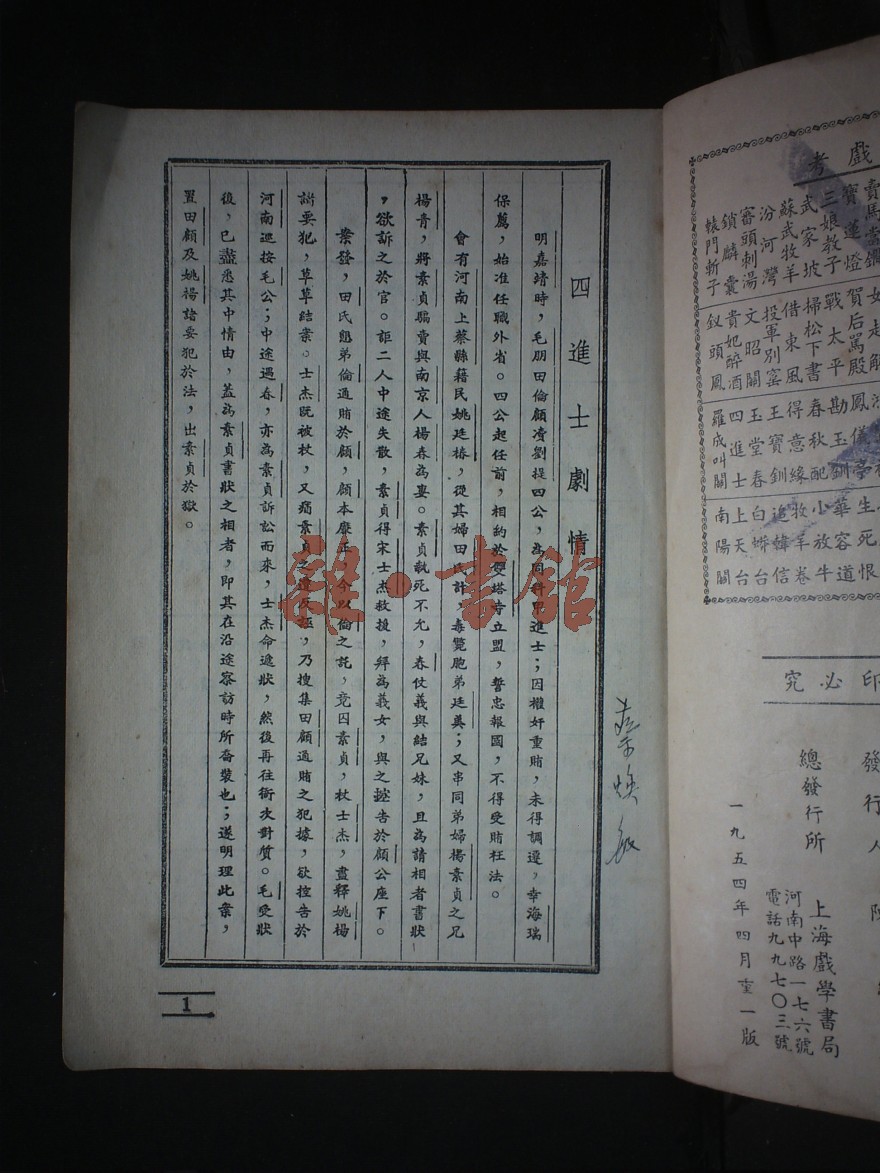 四進士劇情
明嘉靖時，毛朋田倫顧瀆劉提四公，為同科
進士；因權奸重賄，未得調遷，幸海瑞
保薦，始准任職外省。四公起任前，相約於雙塔寺立盟，誓忠報國，不得受賄枉法。
會有河南上蔡縣籍民姚廷椿，從其婦田氏計，毒斃胞弟廷美；又串同弟婦楊素貞之兄
楊青，將素貞騙賣與南京人楊春為妻。素貞執死不允，春仗義與結兄妹，且為請相者書狀
，欲訴之於官。詎二人中途失散，素貞得宋士杰救援，拜為義女，與之控告於顧公座下。
案發，田氏慫弟倫通賄於顧，顧本廉正，今以倫之託，竟囚素貞，杖士杰，盡釋姚楊
諸要犯，草草結案。士杰既被杖，又痛素貞之遭反誣，乃搜集田顧通賄之犯據，欲控告於
河南巡按毛公；中途遇春，亦為素貞訴訟而來，士杰命遞狀，然後再往衙次對質。毛受狀
後，已盡悉其中情由，蓋為素貞書狀之相者，即其在沿途察訪時所喬裝也；遂明理此案，
置田顧及姚楊諸要犯於法，出素貞於獄。
1
雜·書館
戲考
賣馬當鐧
寶蓮燈
三娘教子
武家坡
蘇武牧羊
汾河灣
審頭刺湯
鎖麟囊
轅門斬子
女起解
賀后罵殿
戰太平
掃松下書
借東風
投軍別窰
文昭關
貴妃醉酒
釵頭鳳
鳳儀亭
勘玉釧
春秋配
得意緣
王寶釧
玉堂春
四進士
羅成叫關
生死恨
華容道
小放牛
牧羊卷
追韓信
白蟒台
上天台
南陽關
印必究
發行人
總發行所
上海戲學書局
河南中路一七六號
電話九九七〇三號
一九五四年四月重一版